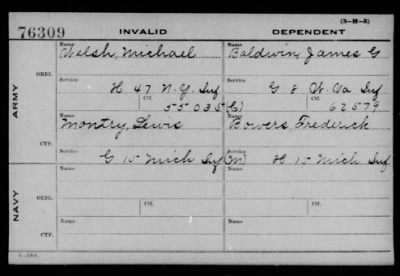 (3-H-5)
76309 INVALID DEPENDENT
Name Welsh, Michael Name Baldwin, James G
ORIG.
Service H 47 N.Y. Inf Service G 8 W. Va Inf
Ctf. 55035 Ctf. 62579
ARMY
Name Montry, Lewis Name Bowers, Frederick
CTF.
Service G 15 Mich Inf Service H 15 Mich Inf
Name Name
ORIG.
Service Ctf. Service Ctf.
NAVY
Name Name
CTF.